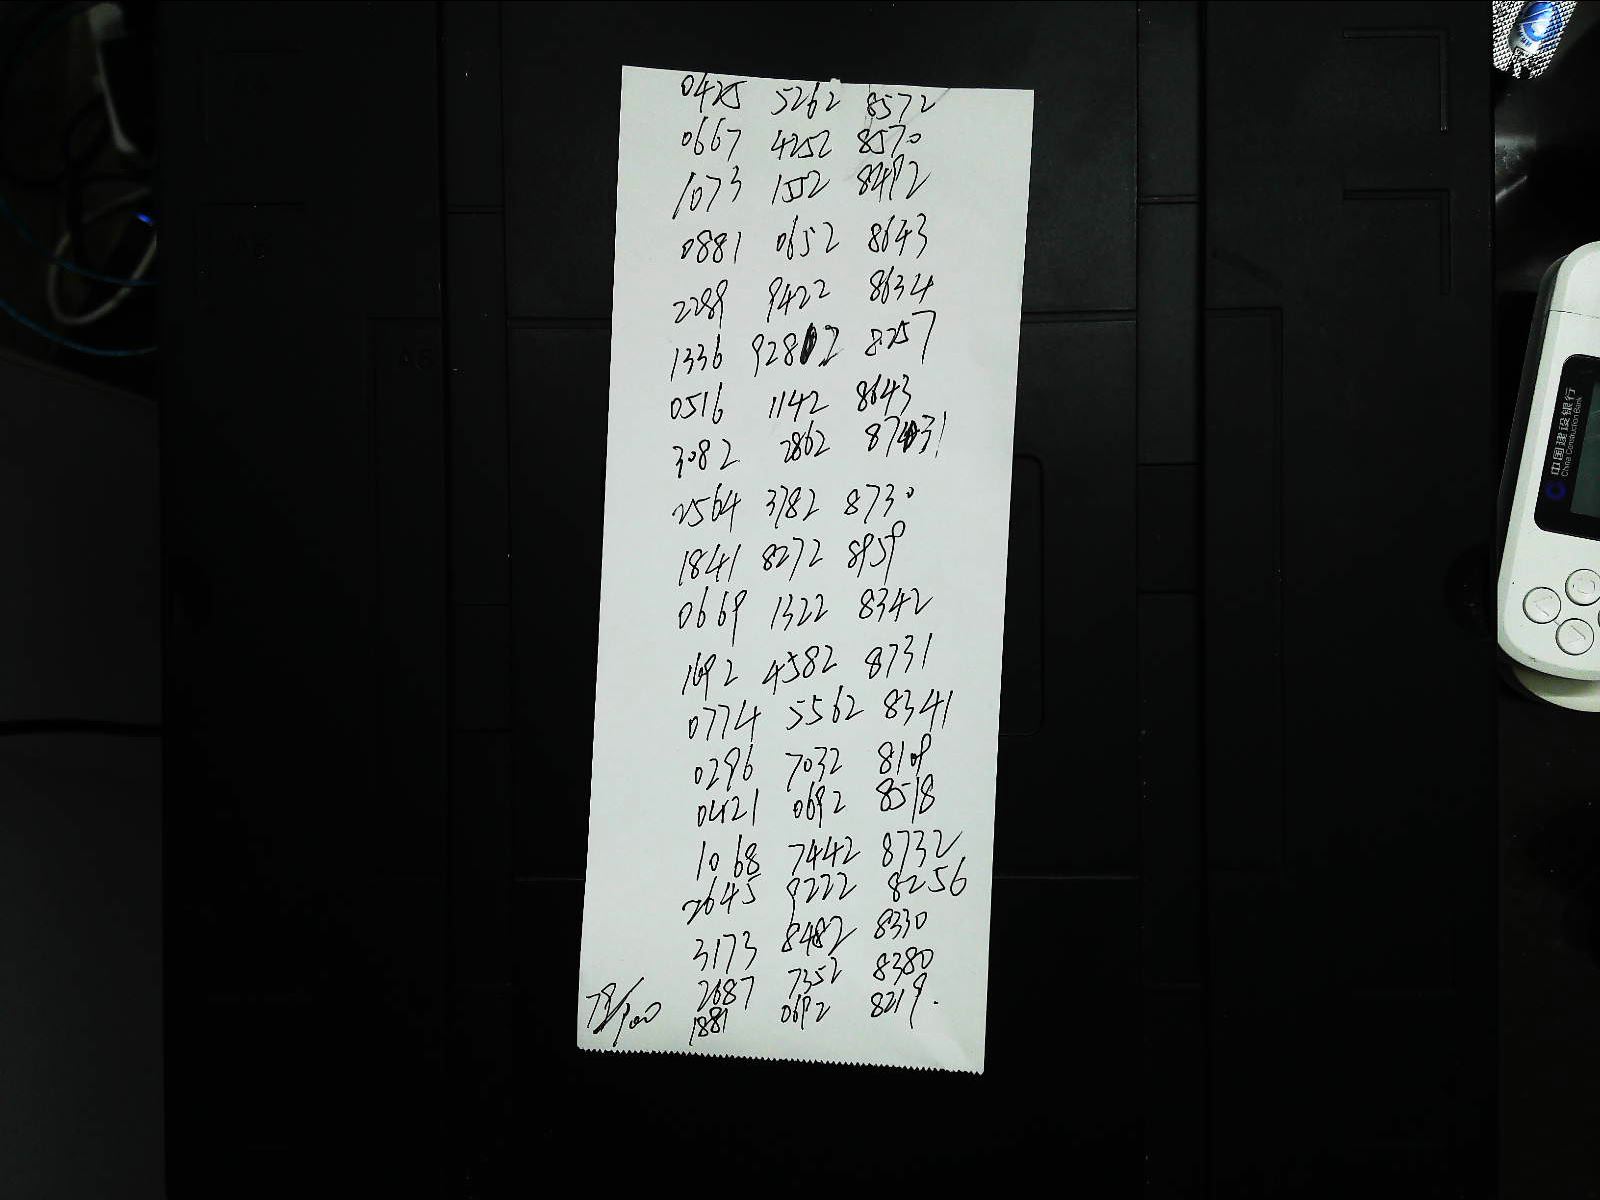 0425 5262 8572
0667 4252 8570
1073 1552 8492
0881 0652 8643
2289 9422 8634
1336 92802 8257
0516 1142 8643
3082 2862 8731
2564 3782 8730
1841 8272 8959
0669 1322 8342
1692 4582 8731
0774 5562 8341
0296 7032 8109
0421 0692 8518
1068 7442 8732
2645 9222 8256
3173 8482 8330
2687 7352 8380
78/900 1881 0692 8219.
中国建设银行
China Construction Bank